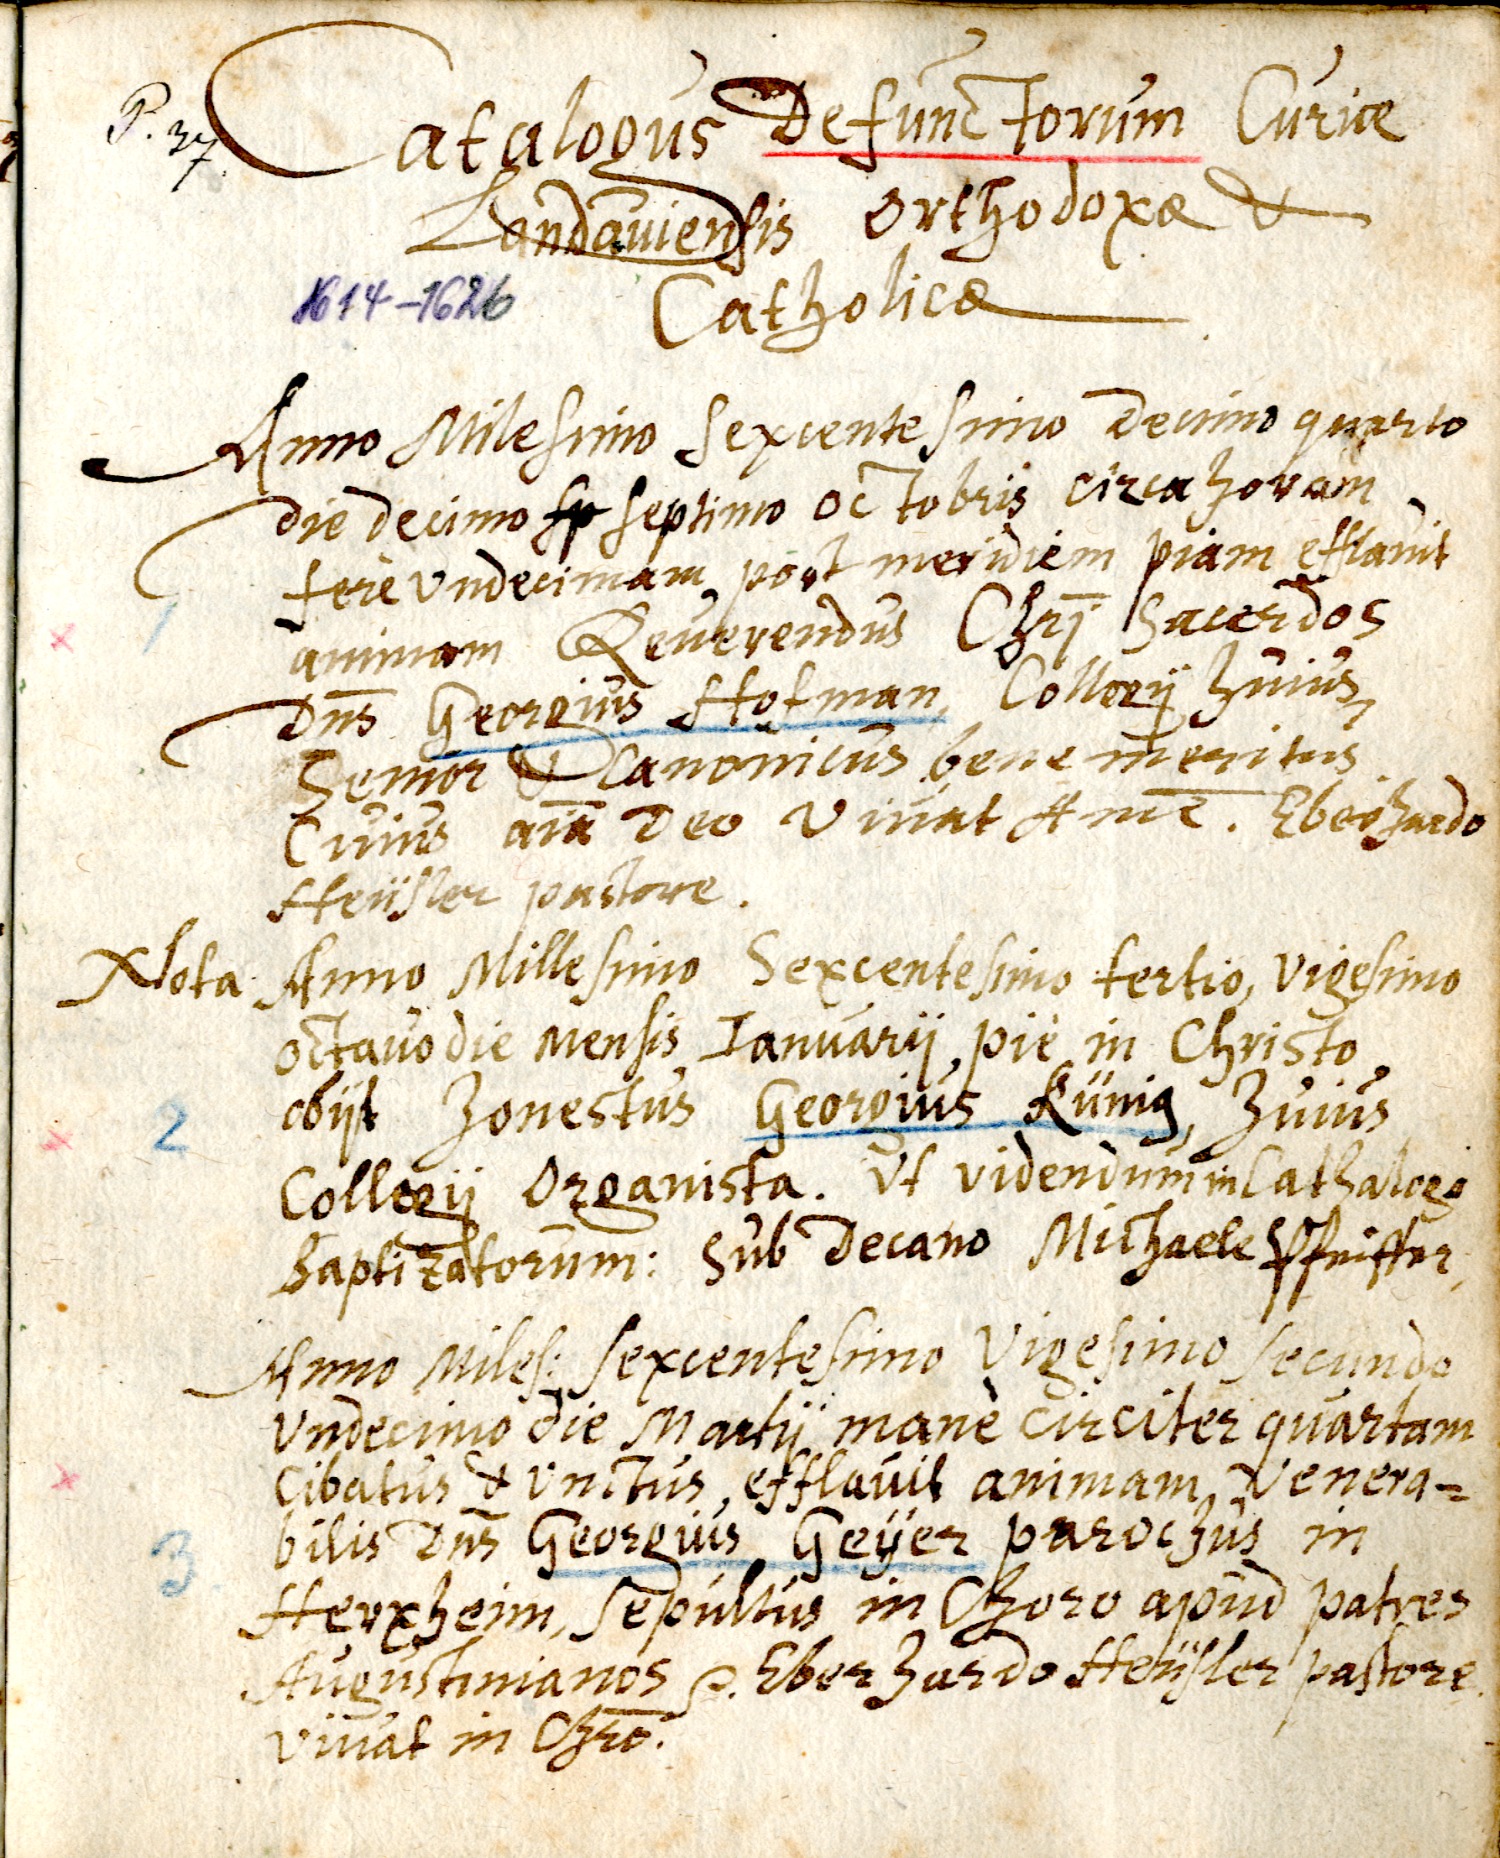 P. 37.
Catalogus Defunctorum Curiæ
Landauiensis Orthodoxæ &
Catholicæ
1614-1626
Anno Milesimo sexcentesimo decimo quarto
die decimo sp septimo octobris circa horam
fere vndecimam post meridiem piam efflauit
animam Reuerendus Chrj Sacerdos
Dns Georgius Hofman, Collegij huius
Senior & Canonicus bene meritus
Cuius aia Deo viuat Ame. Eberhardo
Heÿsler pastore.
Nota Anno Millesimo Sexcentesimo tertio, vigesimo
octauo die Mensis Ianuarij, piè in Christo
obijt honestus Georgius Künig, huius
Collegij Organista. Vt videndum in Cathalogo
Baptizatorum: Sub Decano Michaele Pfeiffer,
Anno Miles: sexcentesimo Vigesimo secundo
vndecimo die Martij manè circiter quartam
Cibatus & vnctus, efflauit animam Venera-
bilis Dns Georgius Geÿer parochus in
Herxheim, sepultus in Choro apud patres
Augustinianos p. Eberhardo Heÿsler pastore.
viuat in Chro.
1
2
3